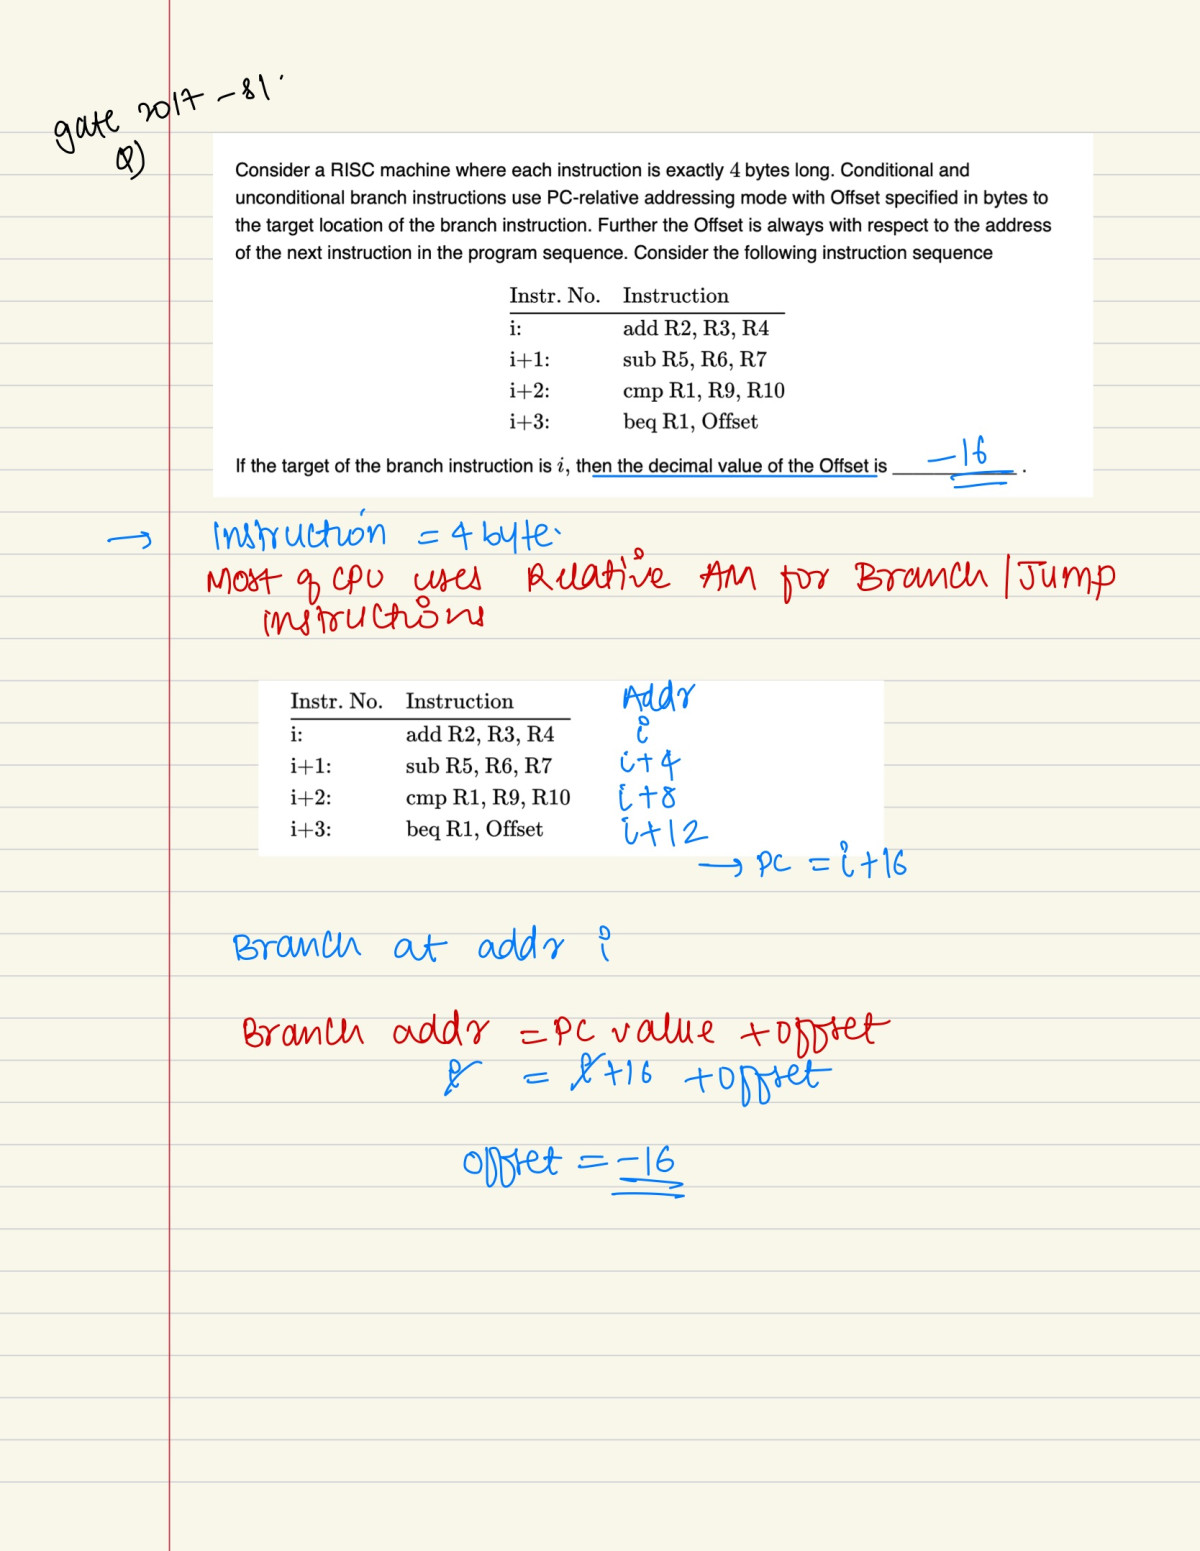 gate 2017 - 81.
Q)
Consider a RISC machine where each instruction is exactly 4 bytes long. Conditional and
unconditional branch instructions use PC-relative addressing mode with Offset specified in bytes to
the target location of the branch instruction. Further the Offset is always with respect to the address
of the next instruction in the program sequence. Consider the following instruction sequence
Instr. No. Instruction
i: add R2, R3, R4
i+1: sub R5, R6, R7
i+2: cmp R1, R9, R10
i+3: beq R1, Offset
If the target of the branch instruction is i, then the decimal value of the Offset is -16 .
→ Instruction = 4 byte.
Most of CPU uses Relative AM for Branch | Jump
instructions
Instr. No. Instruction Addr
i: add R2, R3, R4 i
i+1: sub R5, R6, R7 i+4
i+2: cmp R1, R9, R10 i+8
i+3: beq R1, Offset i+12
→ PC = i+16
Branch at addr i
Branch addr = PC value + offset
i = i+16 + offset
offset = -16